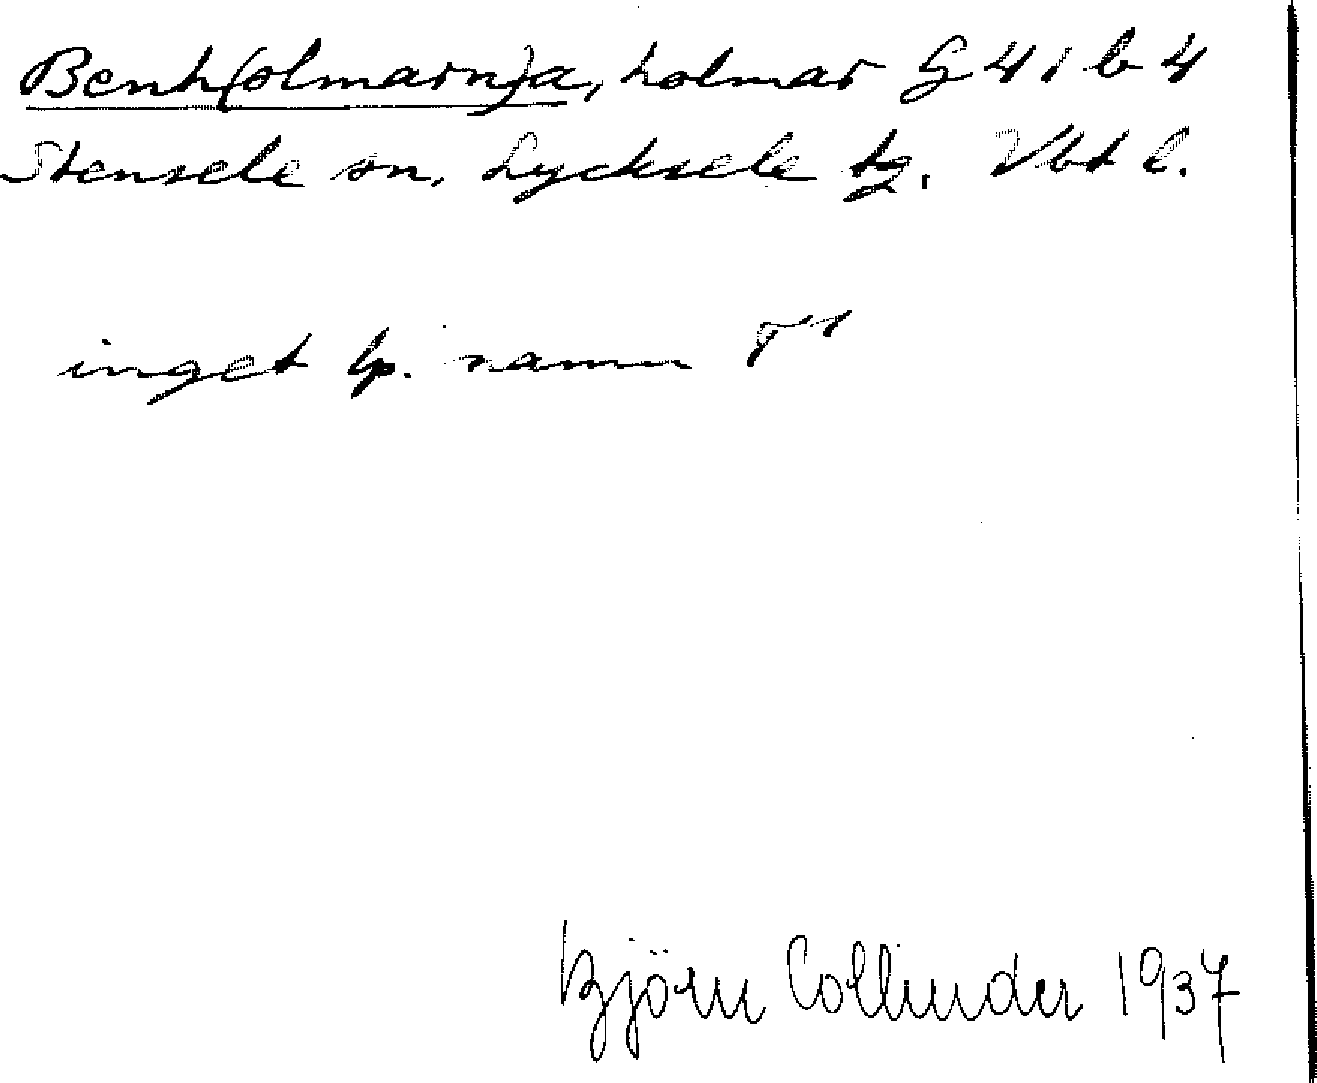 Benh(olmarn)a, holmar G 41 b 4
Stensele sn, Lycksele tg. Vbt l.
inget lp. namn T1
Björn Collinder 1937